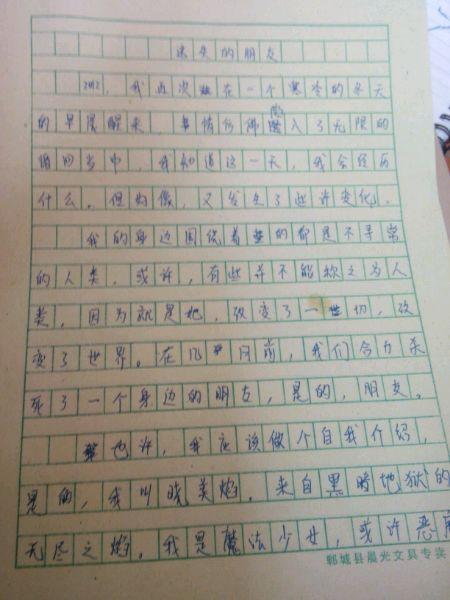 迷失的朋友
2012，我再次在一个寒冷的冬天
的早晨醒来，事情仿佛陷入了无限的
循回当中，我知道这一天，我会经历
什么。但好像，又发生了些许变化。
我的身边围绕着的都是不寻常
的人类，或许，有些并不能称之为人
类，因为就是她，改变了一切，改
变了世界。在几个月前，我们合力杀
死了一个身边的朋友，是的，朋友。
也许，我应该做个自我介绍，
是的，我叫晓美焰，来自黑暗地狱的
无尽之焰。我是魔法少女，或许恶魔
郸城县晨光文具专卖